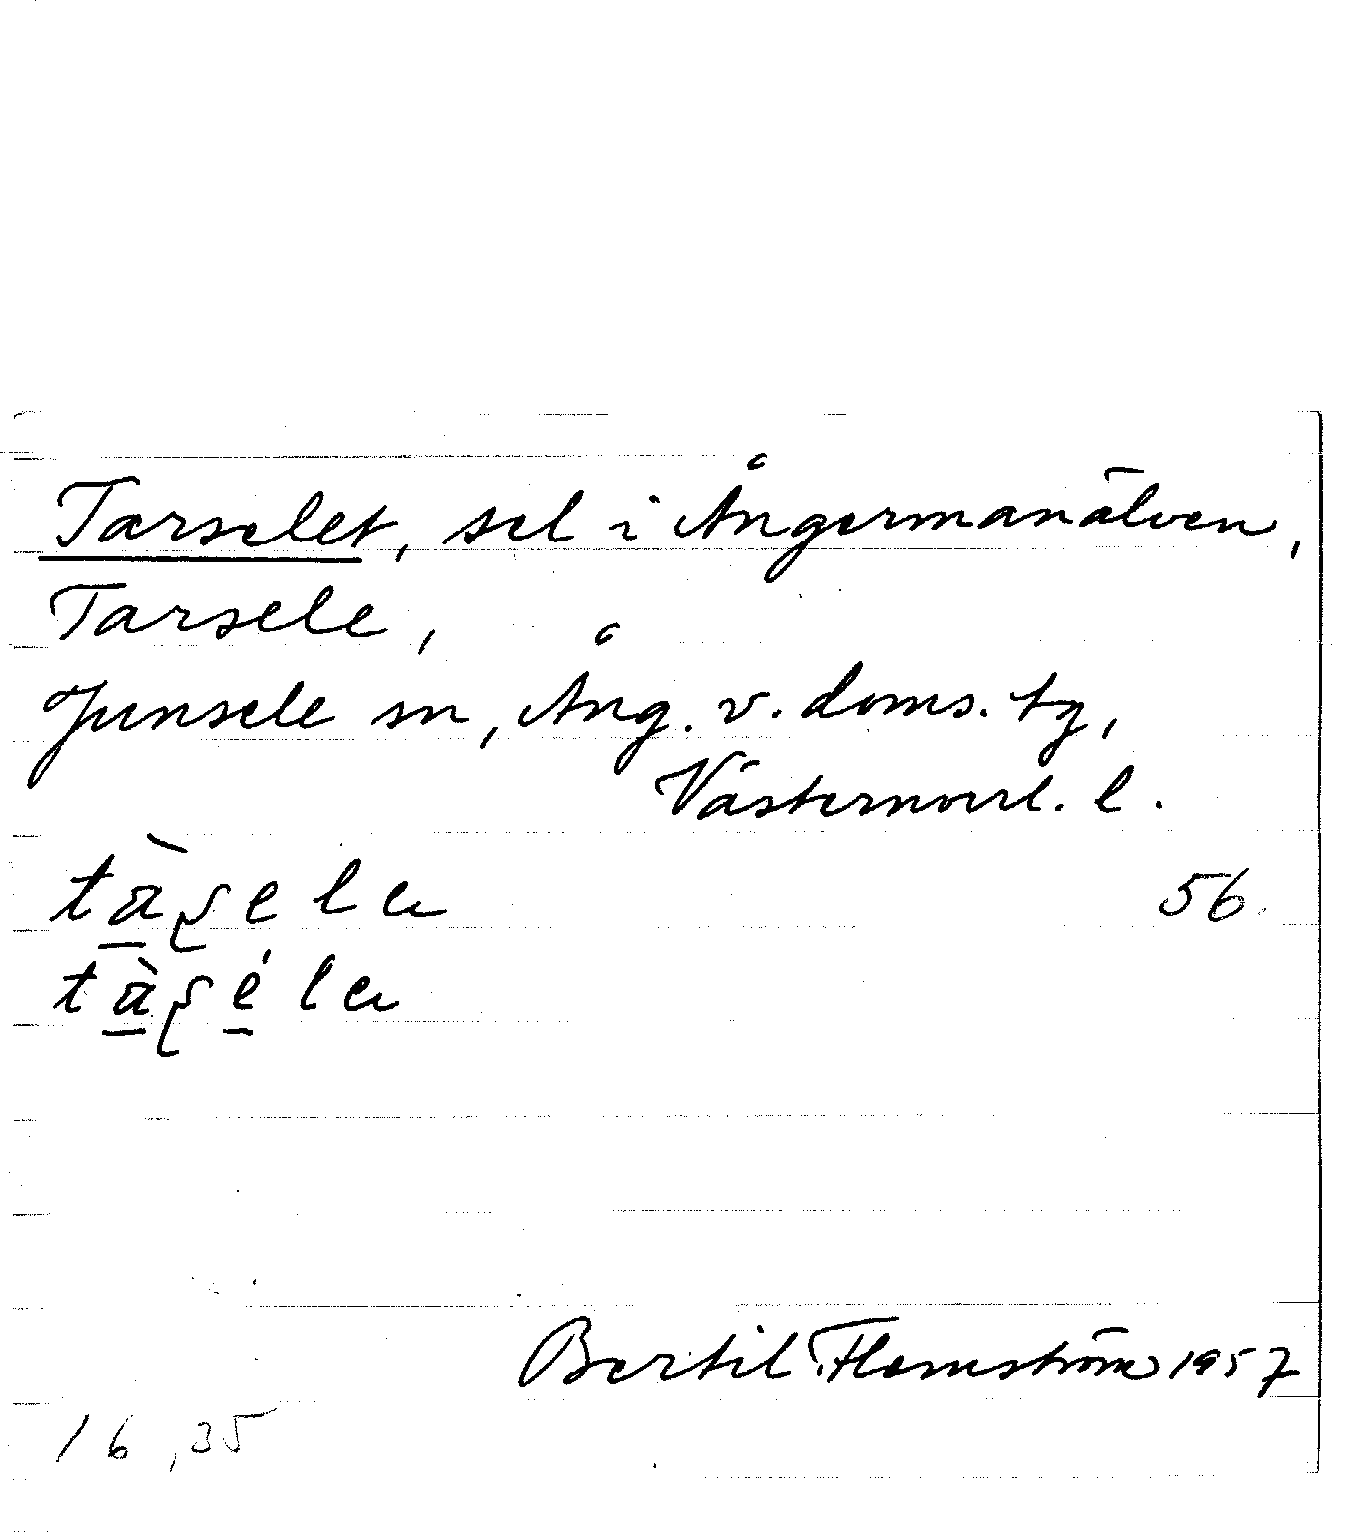 Tarselet, sel i Ångermanälven,
Tarsele,
Junsele sn, Ång. v. doms. tg,
Västernorrl. l.
tàʂela 56.
tàʂéla
Bertil Flemström 1957
16,35